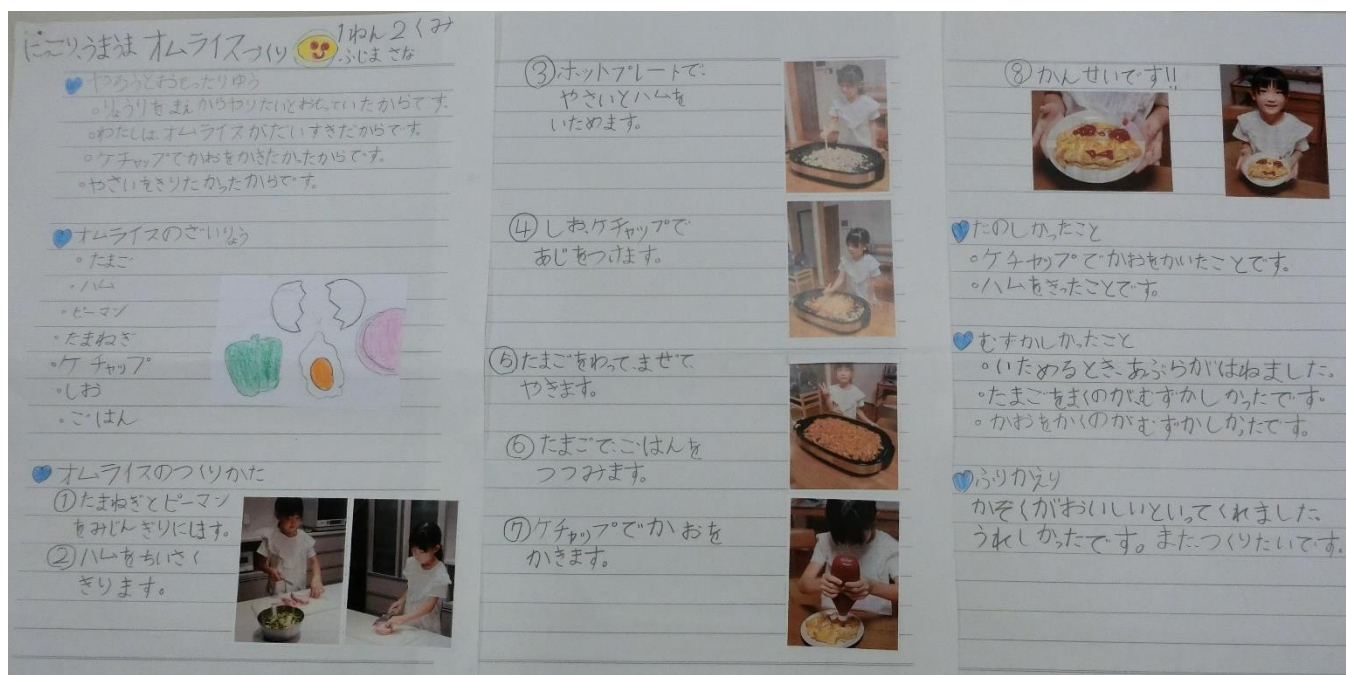 に〜こり、うまうま オムライスづくり
1ねん2くみ
ふじま さな
やろうとおもったりゆう
・りょうりをまえからやりたいとおもっていたからです。
・わたしは、オムライスがだいすきだからです。
・ケチャップでかおをかきたかったからです。
・やさいをきりたかったからです。
オムライスのざいりょう
・たまご
・ハム
・ピーマン
・たまねぎ
・ケチャップ
・しお
・ごはん
オムライスのつくりかた
①たまねぎとピーマン
をみじんぎりにします。
②ハムをちいさく
きります。
③ホットプレートで、
やさいとハムを
いためます。
④しお、ケチャップで
あじをつけます。
⑤たまごをわって、まぜて、
やきます。
⑥たまごで、ごはんを
つつみます。
⑦ケチャップでかおを
かきます。
⑧かんせいです!!
たのしかったこと
・ケチャップでかおをかいたことです。
・ハムをきったことです。
むずかしかったこと
・いためるとき、あぶらがはねました。
・たまごをまくのがむずかしかったです。
・かおをかくのがむずかしかったです。
ふりかえり
かぞくがおいしいといってくれました。
うれしかったです。また、つくりたいです。